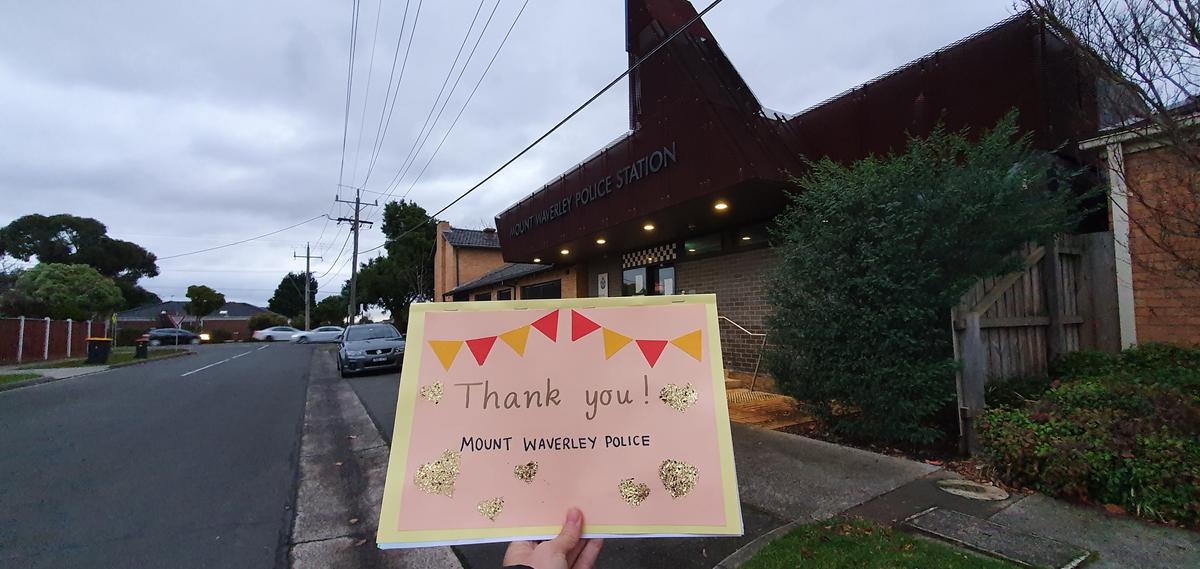 MOUNT WAVERLEY POLICE STATION
Thank you!
MOUNT WAVERLEY POLICE